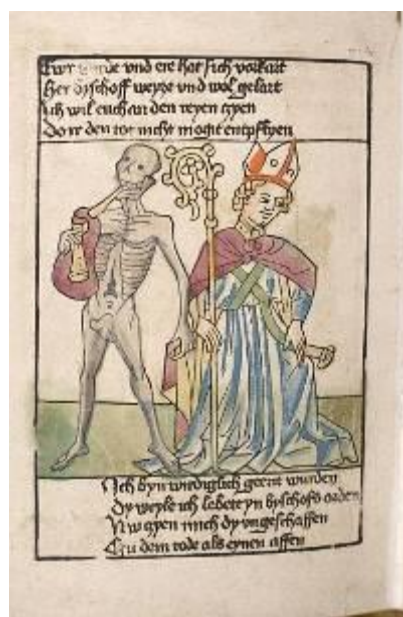 Ewr wirde vnd ere hat sich vorkart
Her byschoff weyze vnd wol gelart
Ich wil euch an den reyen czyen
Do ir den tot nicht mogt entpflyen
Ich byn wirdiglich geert wurden
Dy weyle ich lebete yn byschofs orden
Nw czyen mich dy vngeschaffen
Czu dem tode als eynen affen